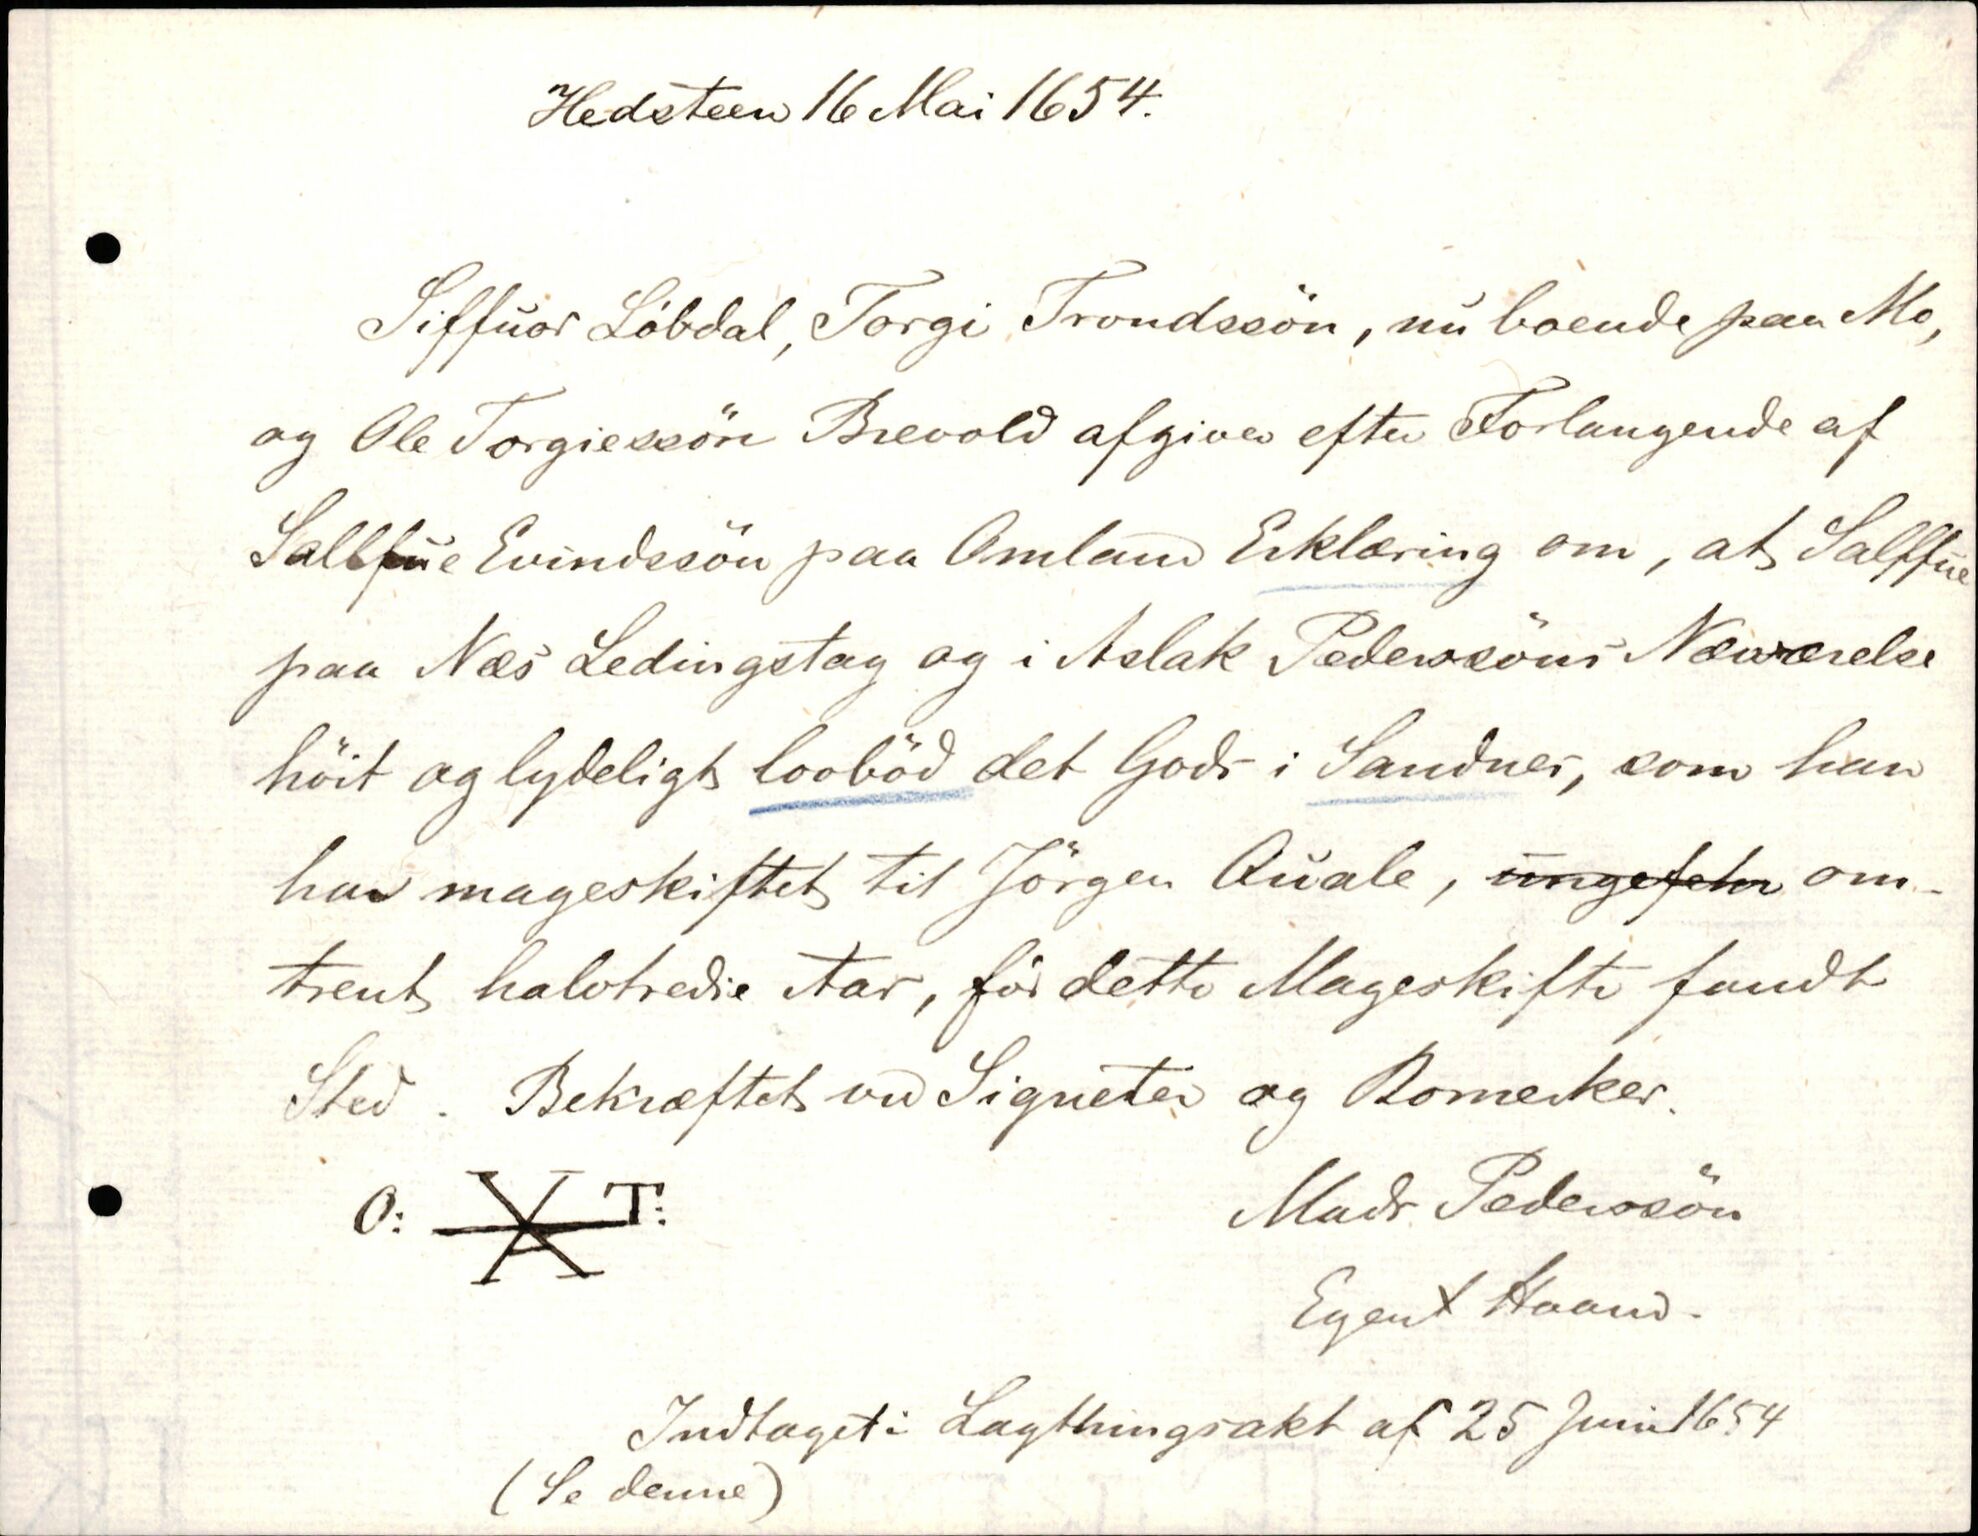 Hedsteen 16 Mai 1654.
Siffuor Löbdal, Torgi Trondssön, nu boende paa Mo,
og Ole Torgiessön Brevold afgiver efter Forlangende af
Salffue Evindssön paa Omland Erklæring om, at Salffue
paa Næs Ledingstag og i Aslak Pederssöns Næwærelse
höit og lydeligt lovböd det Gods i Sandnes, som han
har mageskiftet til Jörgen Quale, ungefehr om-
trent halvtredie Aar, för dette Mageskifte fandt
Sted. Bekræftet ved Signeter og Bomerker.
O: T:
Mads Pederssön
Egen Haand.
Indtaget i Lagthingsakt af 25 Juni 1654
(Se denne)